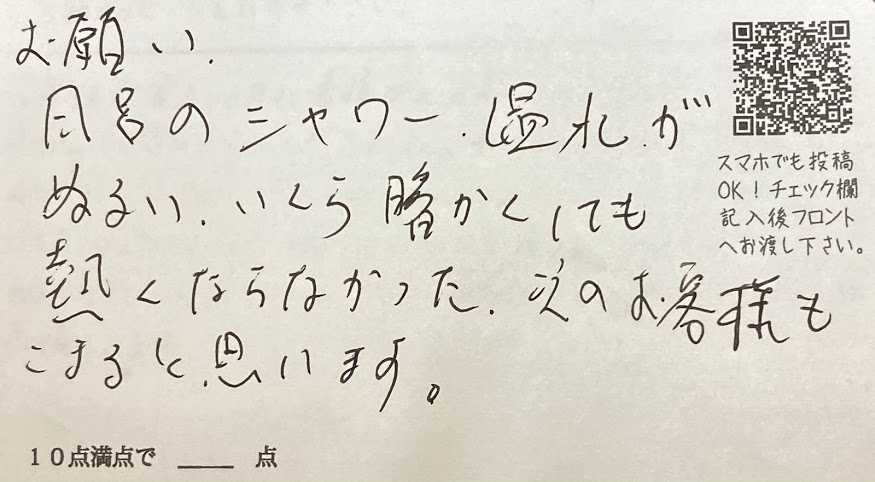 お願い.
風呂のシャワー.温れが
ぬるい.いくら暖かくしても
熱くならなかった.次のお客様も
こまると思います。
スマホでも投稿
OK！チェック欄
記入後フロント
へお渡し下さい。
10点満点で ____ 点